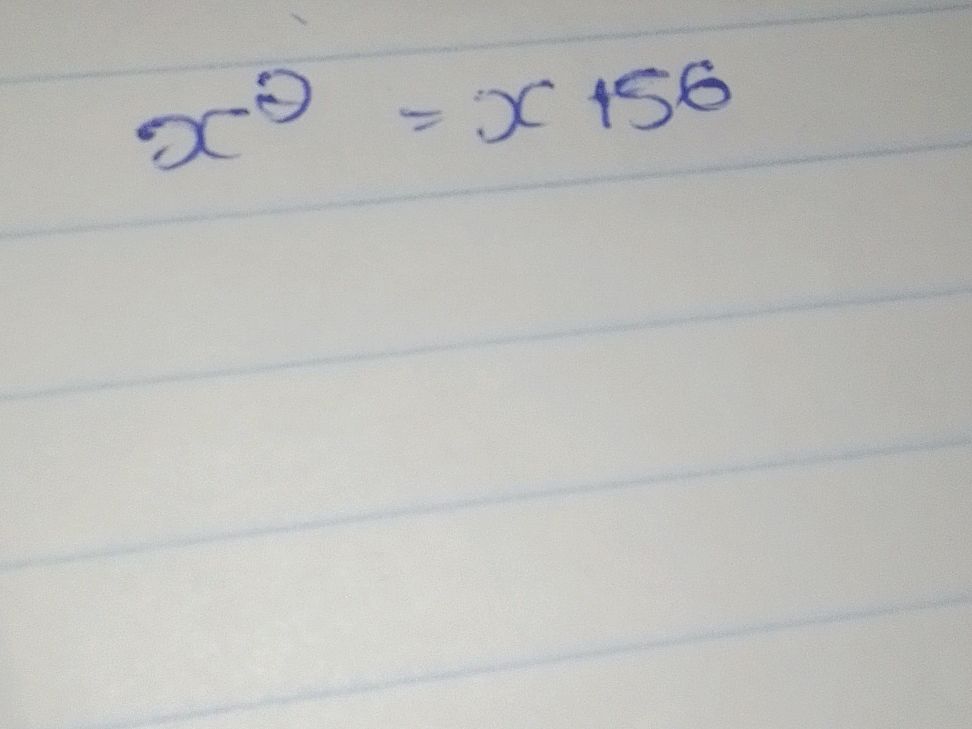 x² = x + 56